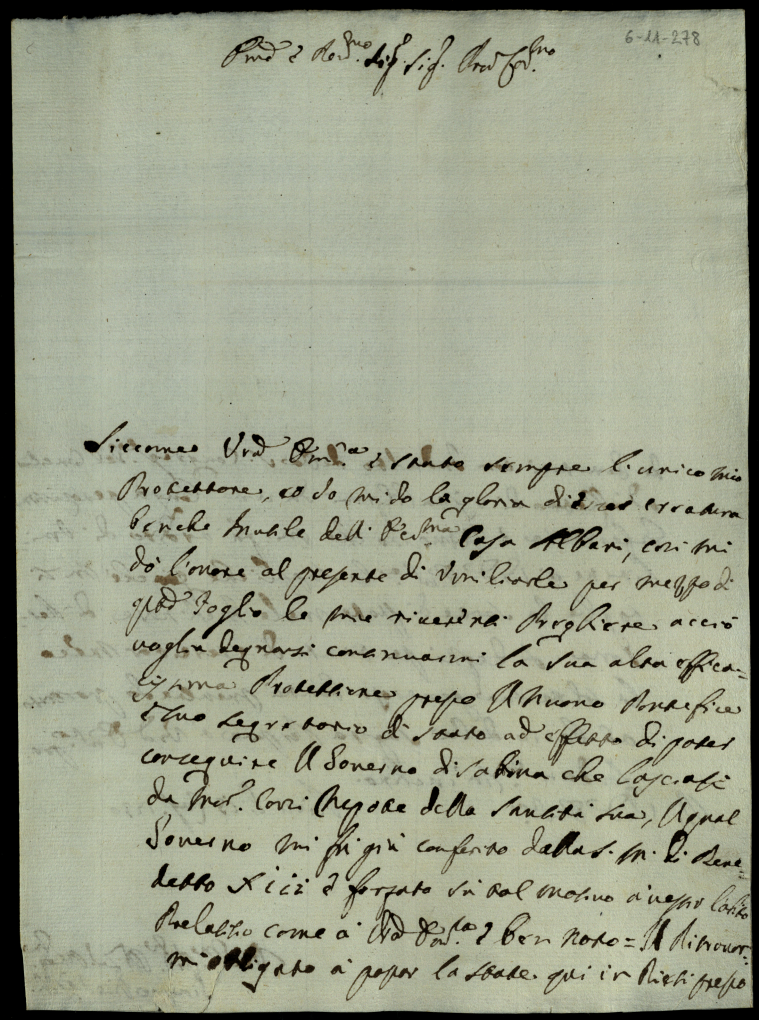 6-11-278
Em̃o e Rev.mo Sig.r Sig.r Pron Col.mo
Siccome Vr̃a Em.a è stato sempre l'unico mio
Protettore, ed Io mi do la gloria di esser creatura
benche Inutile dell' Ecc.ma Casa Albani, così mi
dò l'onore al presente di Umiliarle per mezzo di
q̃sto foglio le mie riverenti Preghiere acciò
voglia degnarsi continuarmi la sua alta effica=
cissima Protettione presso Il Nuovo Pontefice
e suo Segretario di Stato ad effetto di poter
conseguire Il Governo di Sabina che lasciasi
da Mons.r Corsi Nepote della Santità Sua, Il qual
Governo mi fù già conferito dalla S. M. di Bene=
detto XIII e forzato sù tal motivo a
Prelatitio come à Vr̃a Em.za è ben noto = Il Ritrovar=
mi obligato à passar la state qui in Rieti presso